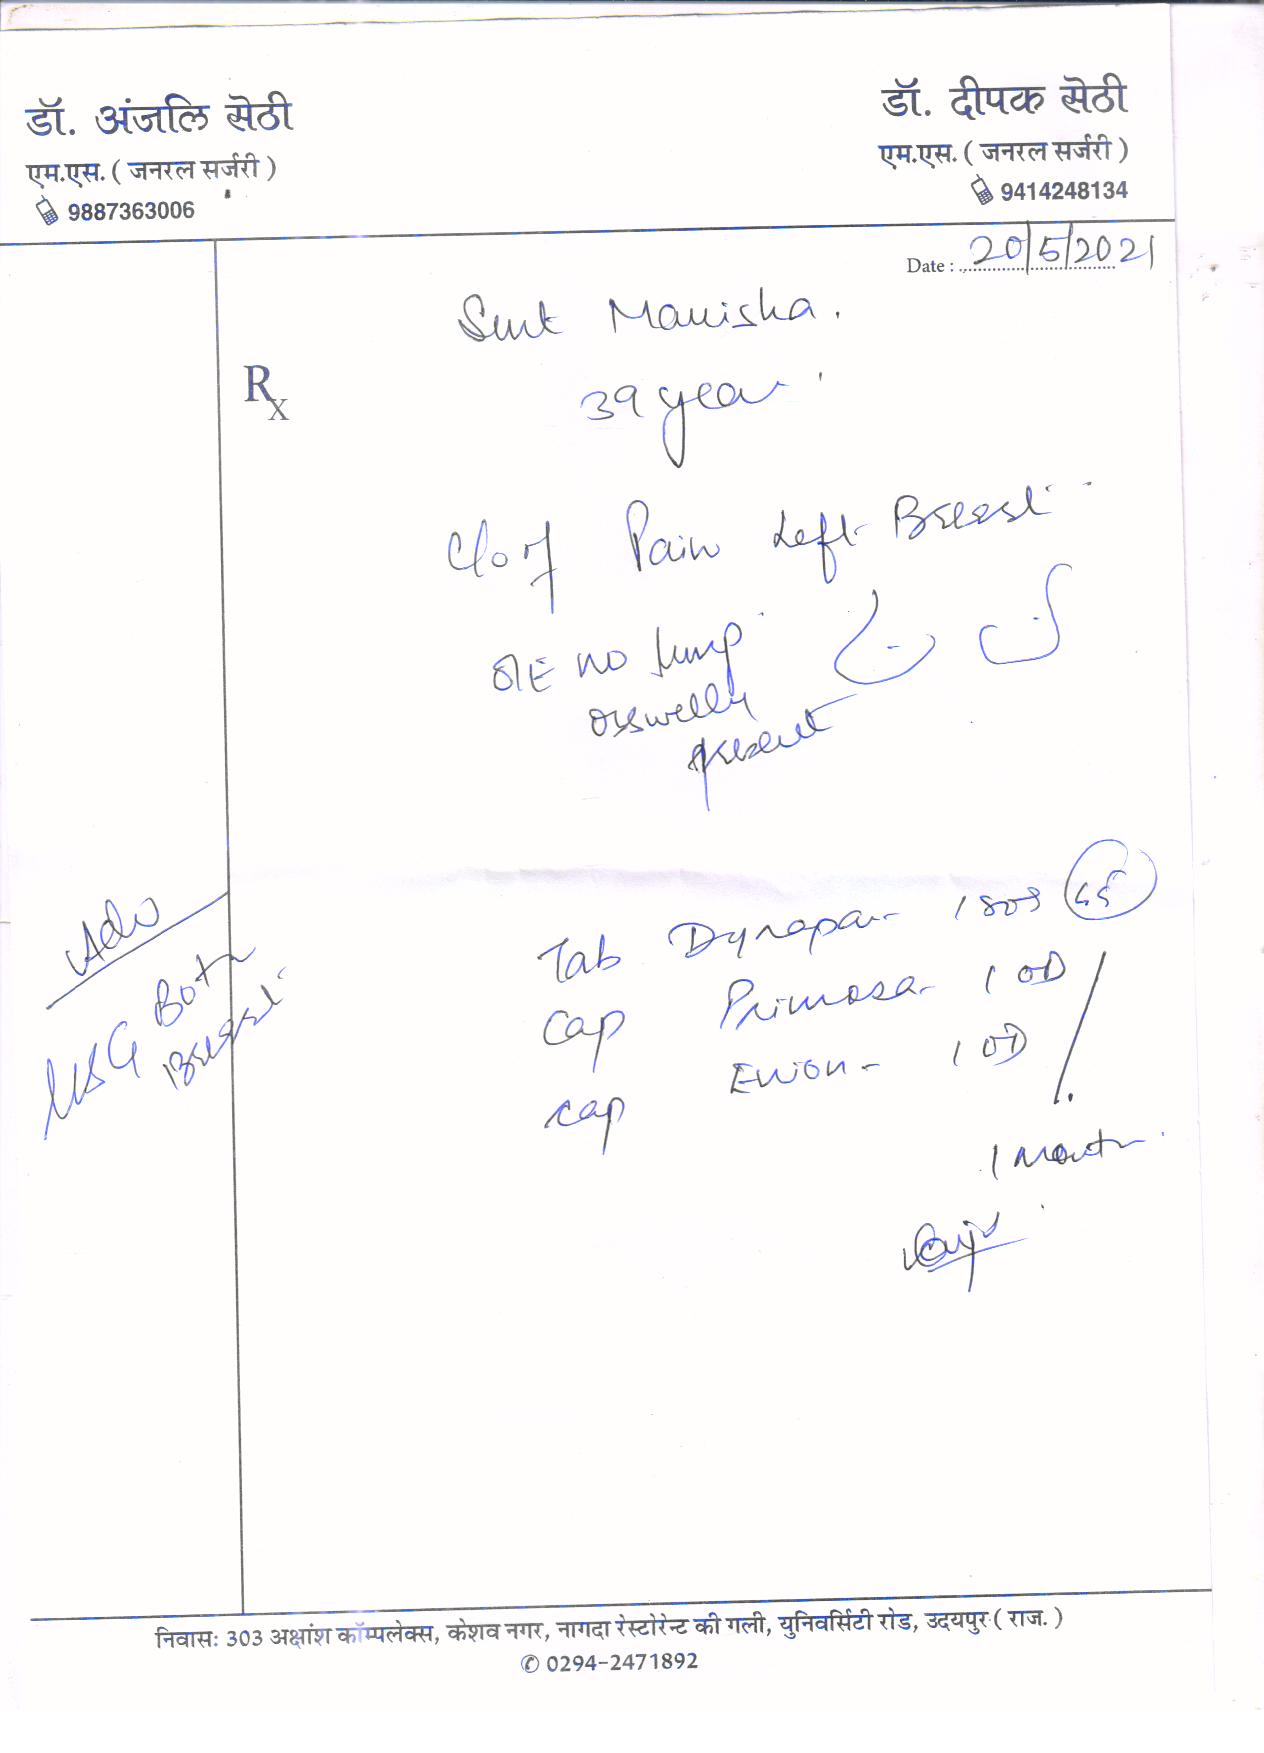 डॉ. अंजलि सेठी
एम.एस. ( जनरल सर्जरी )
9887363006
डॉ. दीपक सेठी
एम.एस. ( जनरल सर्जरी )
9414248134
Date : 20/5/2021
Smt Manisha.
Rx
39 year
C/o of Pain Left Breast
O/E no lump
or swelling
present
Adv
USG Both
Breast
Tab Dynapar
Cap Primosa - 1 OD
Cap Evion - 1 OD
1 month
निवासः 303 अक्षांश कॉम्पलेक्स, केशव नगर, नागदा रेस्टोरेन्ट की गली, युनिवर्सिटी रोड, उदयपुर ( राज. )
✆ 0294-2471892